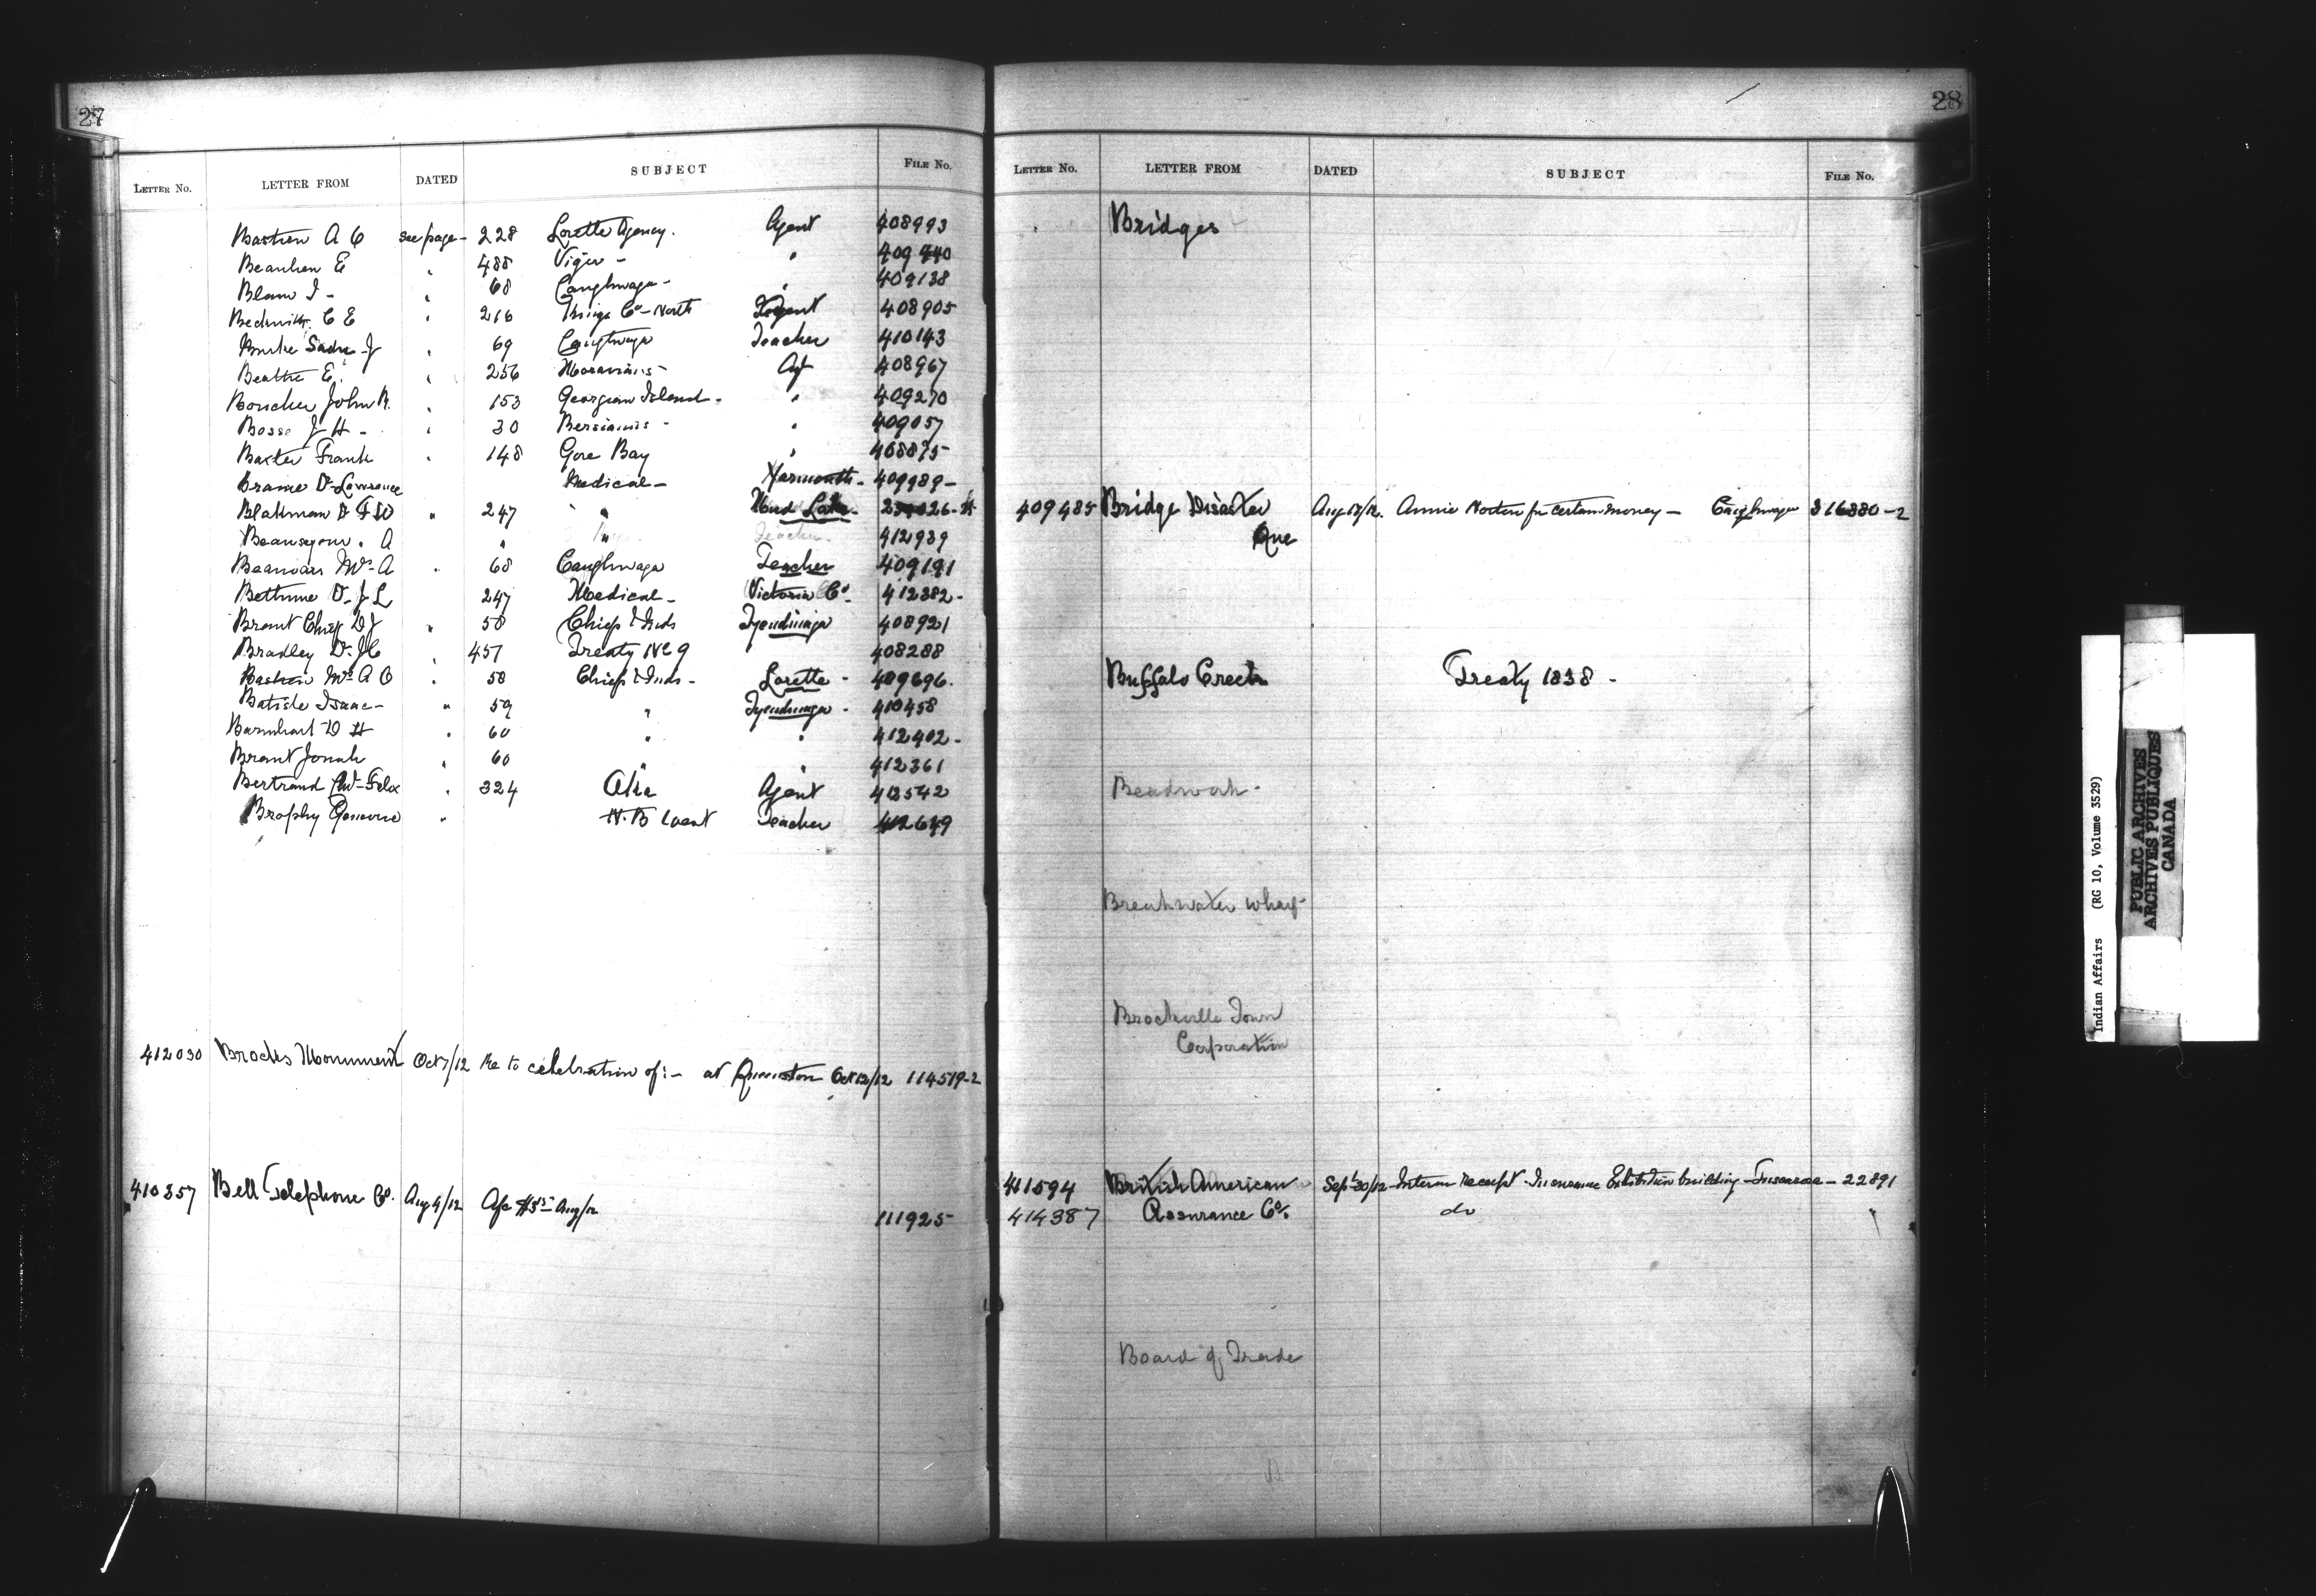 27
LETTER No. LETTER FROM DATED SUBJECT FILE No.
Bastien A O see page - 228 Lorette Agency. Agent 408993
Beaulieu E " 488 Viger - " 409440
Blain J - " 68 Caughnawaga - " 409138
Beckwith C E " 216 Kings Co - North Agent 408905
Burke Sadie J " 69 Caughnawaga Teacher 410143
Beattie E. " 256 Moravians - Agt 408967
Boucher John R. " 153 Georgian Island - " 409270
Bosse J H - " 30 Bersiamis - " 409057
Baxter Frank " 148 Gore Bay " 408875
Braine Dr Lawrence Medical - Yarmouth - 409989 -
Blakman D F W " 247 " Mud Lake -
Beausejour. A " " Teacher. 412939
Beauvais Mrs A " 68 Caughnawaga Teacher 409191
Bethune Dr J L 247 Medical - Victoria Co. 412382 -
Brant Chief D J " 58 Chiefs & Inds Tyendinaga 408921
Bradley Dr J C " 457 Treaty No 9 408288
Bastien Mrs A O " 58 Chiefs & Inds - Lorette - 409696.
Batiste Isaac - " 59 " Tyendinaga - 410458
Barnhart D H " 60 " " 412402 -
Brant Jonah " 60 " " 412361
Bertrand Felix " 324 Agent 412542
Brophy Genevieve " N. B West Teacher 412649
412030 Brocks Monument Oct 7/12 Re to celebration of :- at Queenston Oct 12/12 114519-2
410357 Bell Telephone Co. Aug 4/12 Aug/12
111925
28
LETTER No. LETTER FROM DATED SUBJECT FILE No.
Bridges
409485 Bridge Disaster Aug 17/12. Annie Norton for certain money - Caughnawaga 316880-2
Que
Buffalo Creek Treaty 1838 -
Beadwork -
Breakwater wharf
Brockville Town
Corporation
411594 British American Sept 30/12 - Interim receipt Insurance Exhibition building - Tuscarora - 22891
414387 Assurance Co. do "
Board of Trade
Indian Affairs (RG 10, Volume 3529)
PUBLIC ARCHIVES
ARCHIVES PUBLIQUES
CANADA